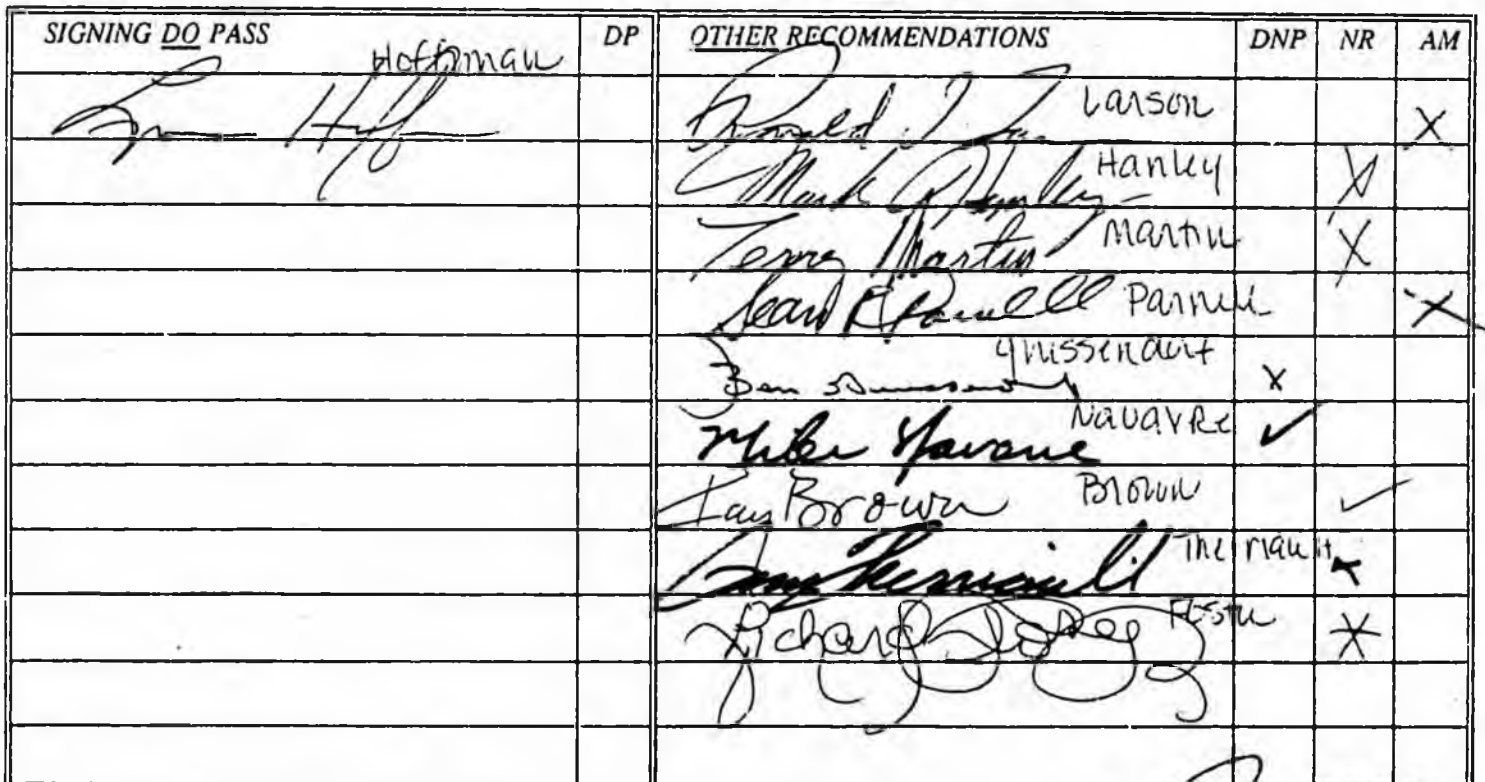 SIGNING DO PASS DP OTHER RECOMMENDATIONS DNP NR AM
Hoffman
Larson X
Mark Hanley Hanley X
Terry Martin Martin X
Sean R Parnell Parnell X
Ben x
Mike Navarre Navarre ✓
Kay Brown Brown ✓
Therriault x
Richard Foster Foster X